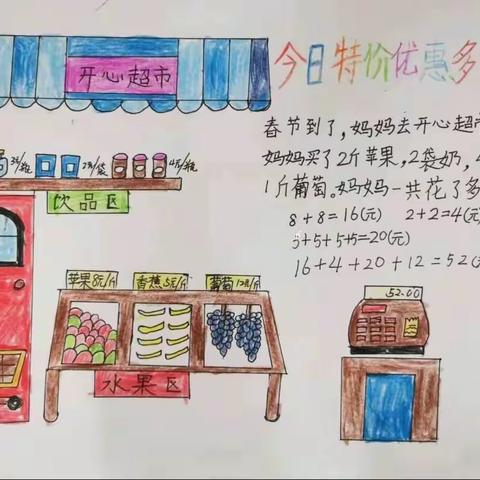 今日特价优惠多
开心超市
春节到了,妈妈去开心超市
妈妈买了2斤苹果,2袋奶,
1斤葡萄。妈妈一共花了多
8+8=16(元) 2+2=4(元)
5+5+5+5=20(元)
16+4+20+12=52(元
2元/袋
饮品区
苹果8元/斤 香蕉5元/斤 葡萄12元/斤
52.00
水果区